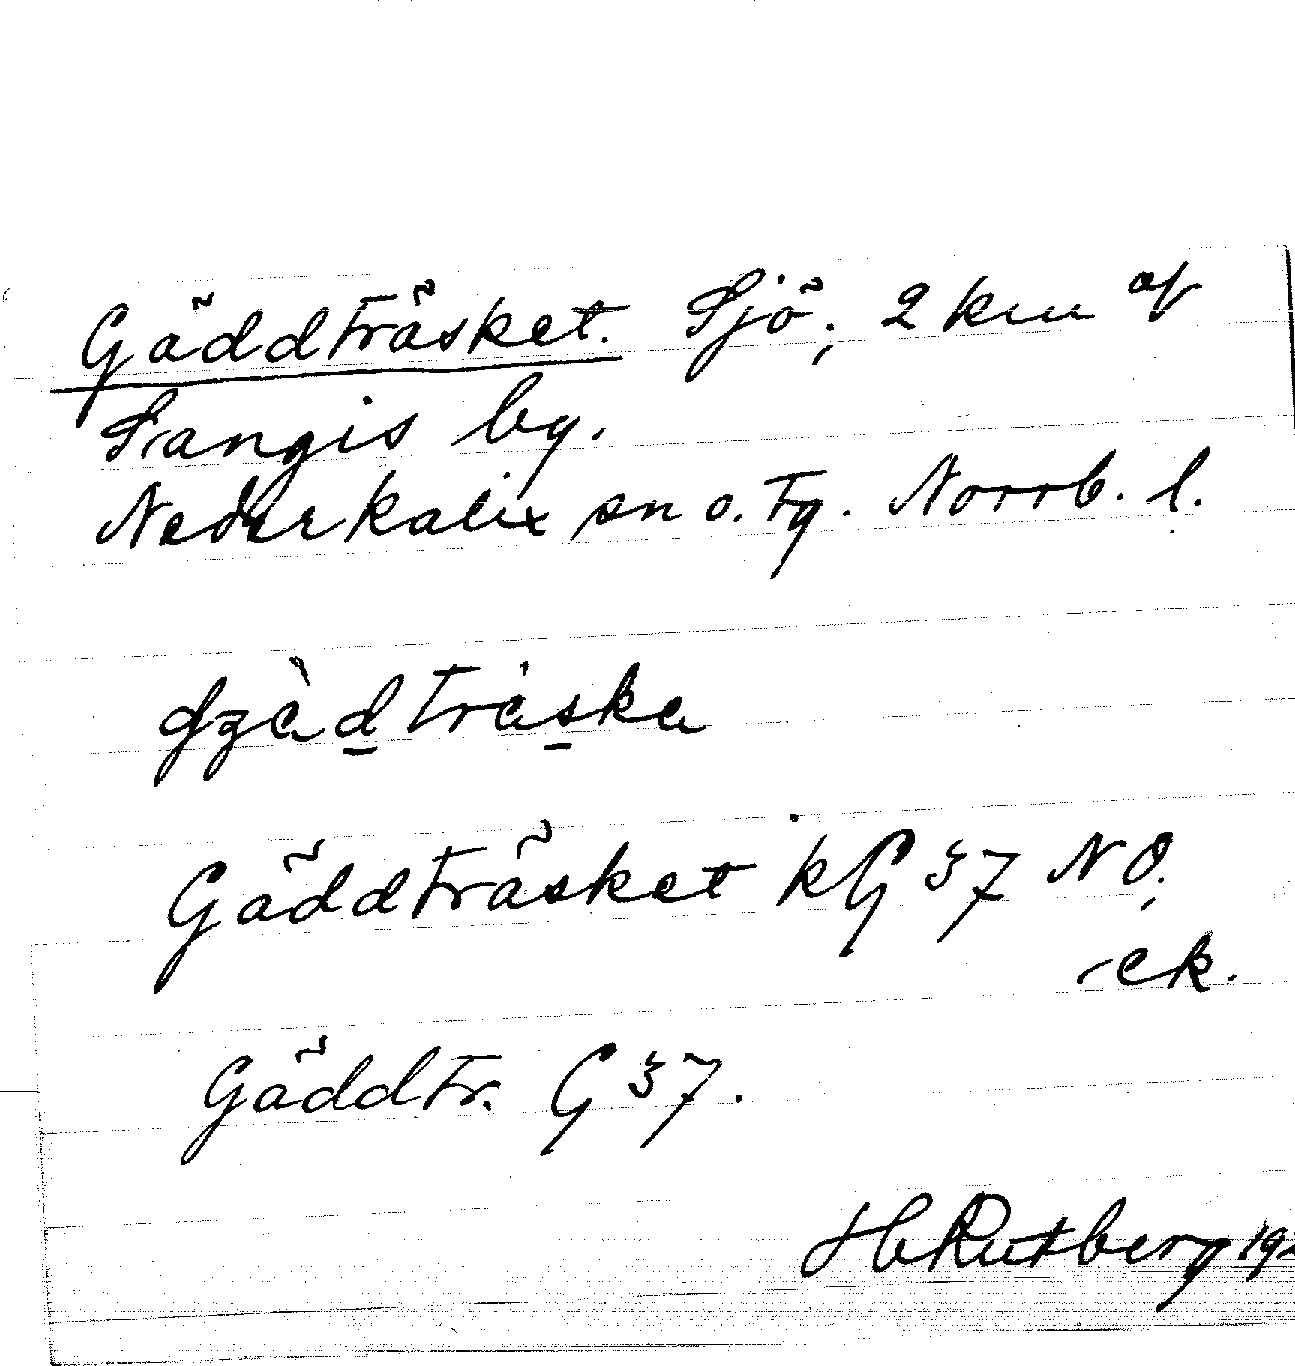 Gäddträsket. Sjö; 2 km av
Sangis by.
Nederkalix sn o. tg. Norrb. l.
Gäddträsket kG 37 NO,
ek.
Gäddtr. G 37.
H Rutberg